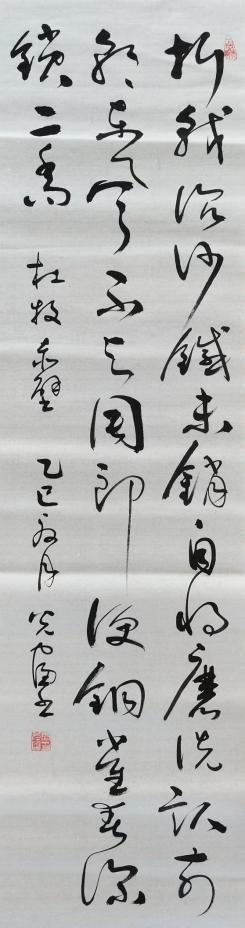 折戟沉沙鐵未銷自將磨洗認前
朝東風不與周郎便銅雀春深
鎖二喬 杜牧 赤壁 乙巳 月 書